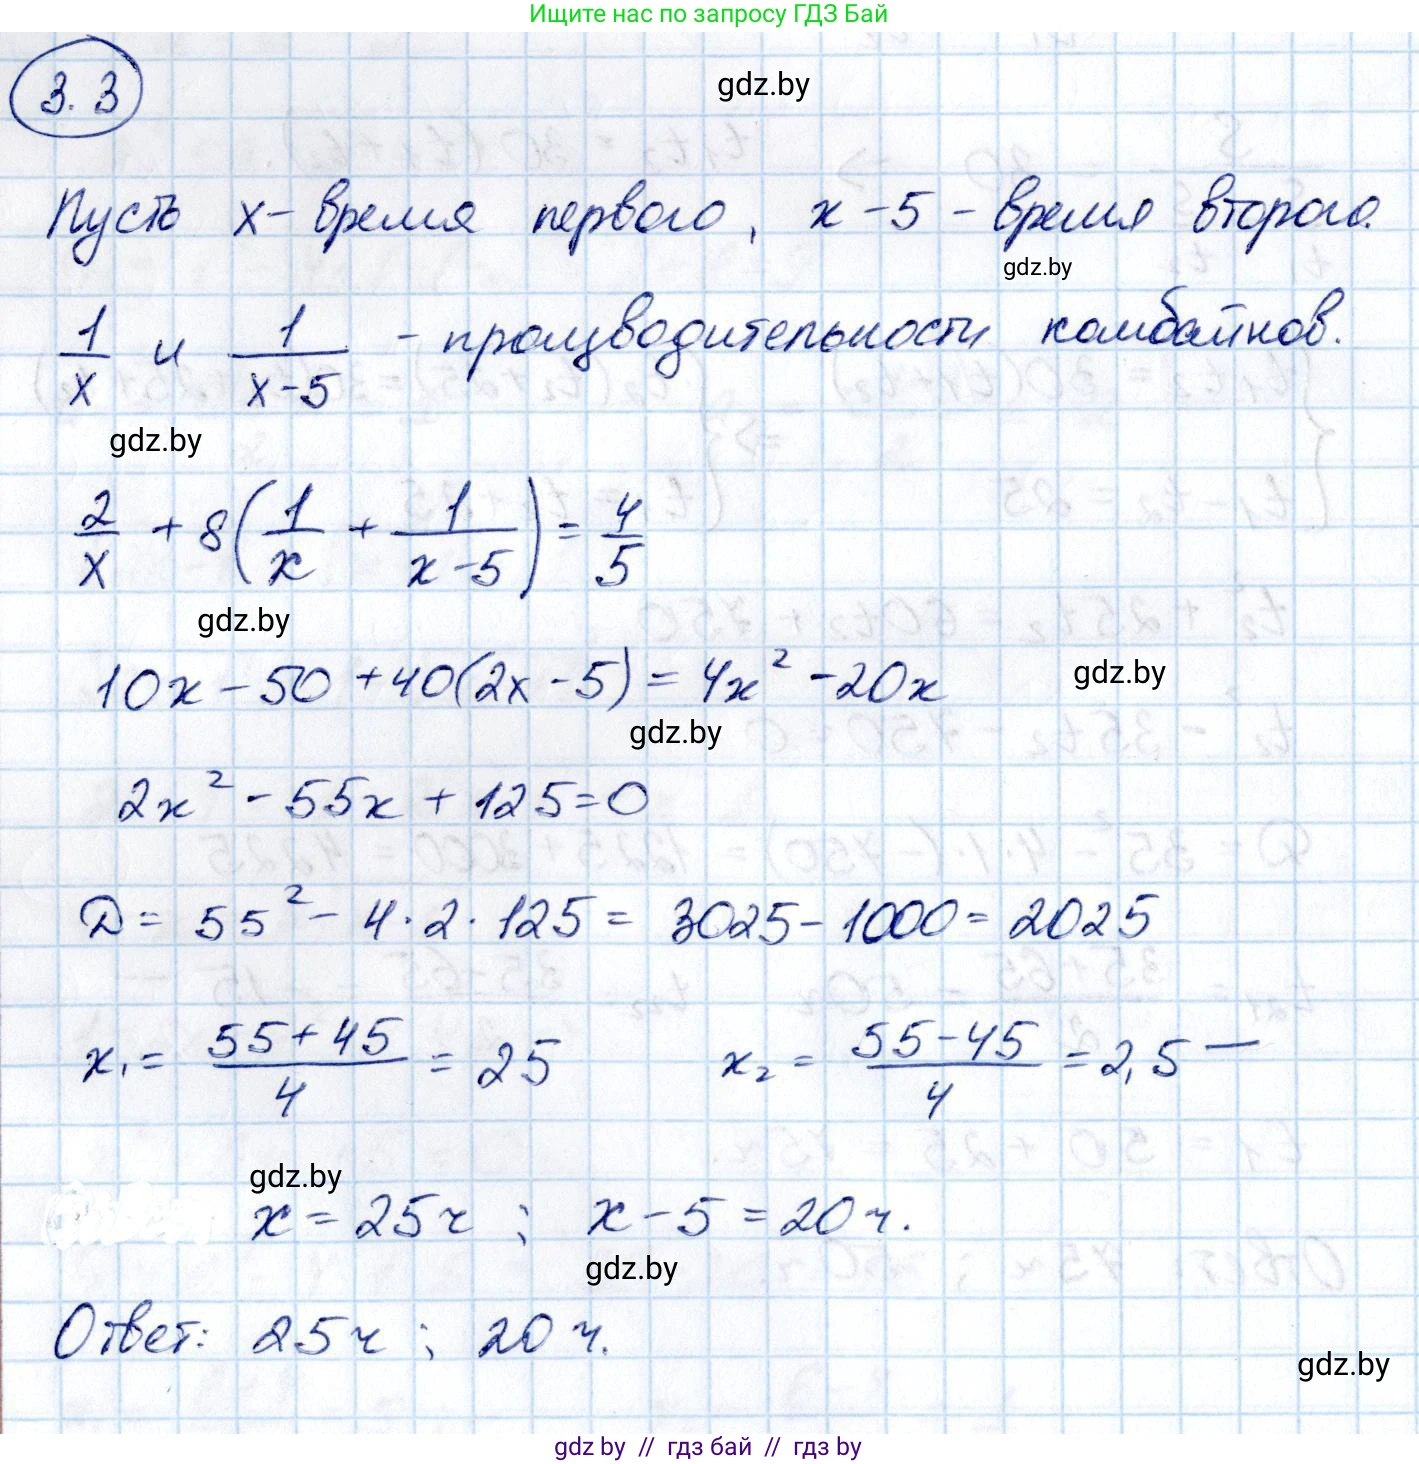 Ищите нас по запросу ГДЗ Бай
3.3
gdz.by
Пусть x - время первого, x - 5 - время второго.
gdz.by
1/x и 1/(x-5) - производительности комбайнов.
gdz.by
2/x + 8(1/x + 1/(x-5)) = 4/5
gdz.by
10x - 50 + 40(2x - 5) = 4x² - 20x
gdz.by
gdz.by
2x² - 55x + 125 = 0
D = 55² - 4·2·125 = 3025 - 1000 = 2025
x₁ = (55+45)/4 = 25 x₂ = (55-45)/4 = 2,5 —
gdz.by
x = 25 ч ; x - 5 = 20 ч.
gdz.by
Ответ: 25 ч ; 20 ч.
gdz.by
gdz by // гдз бай // гдз by